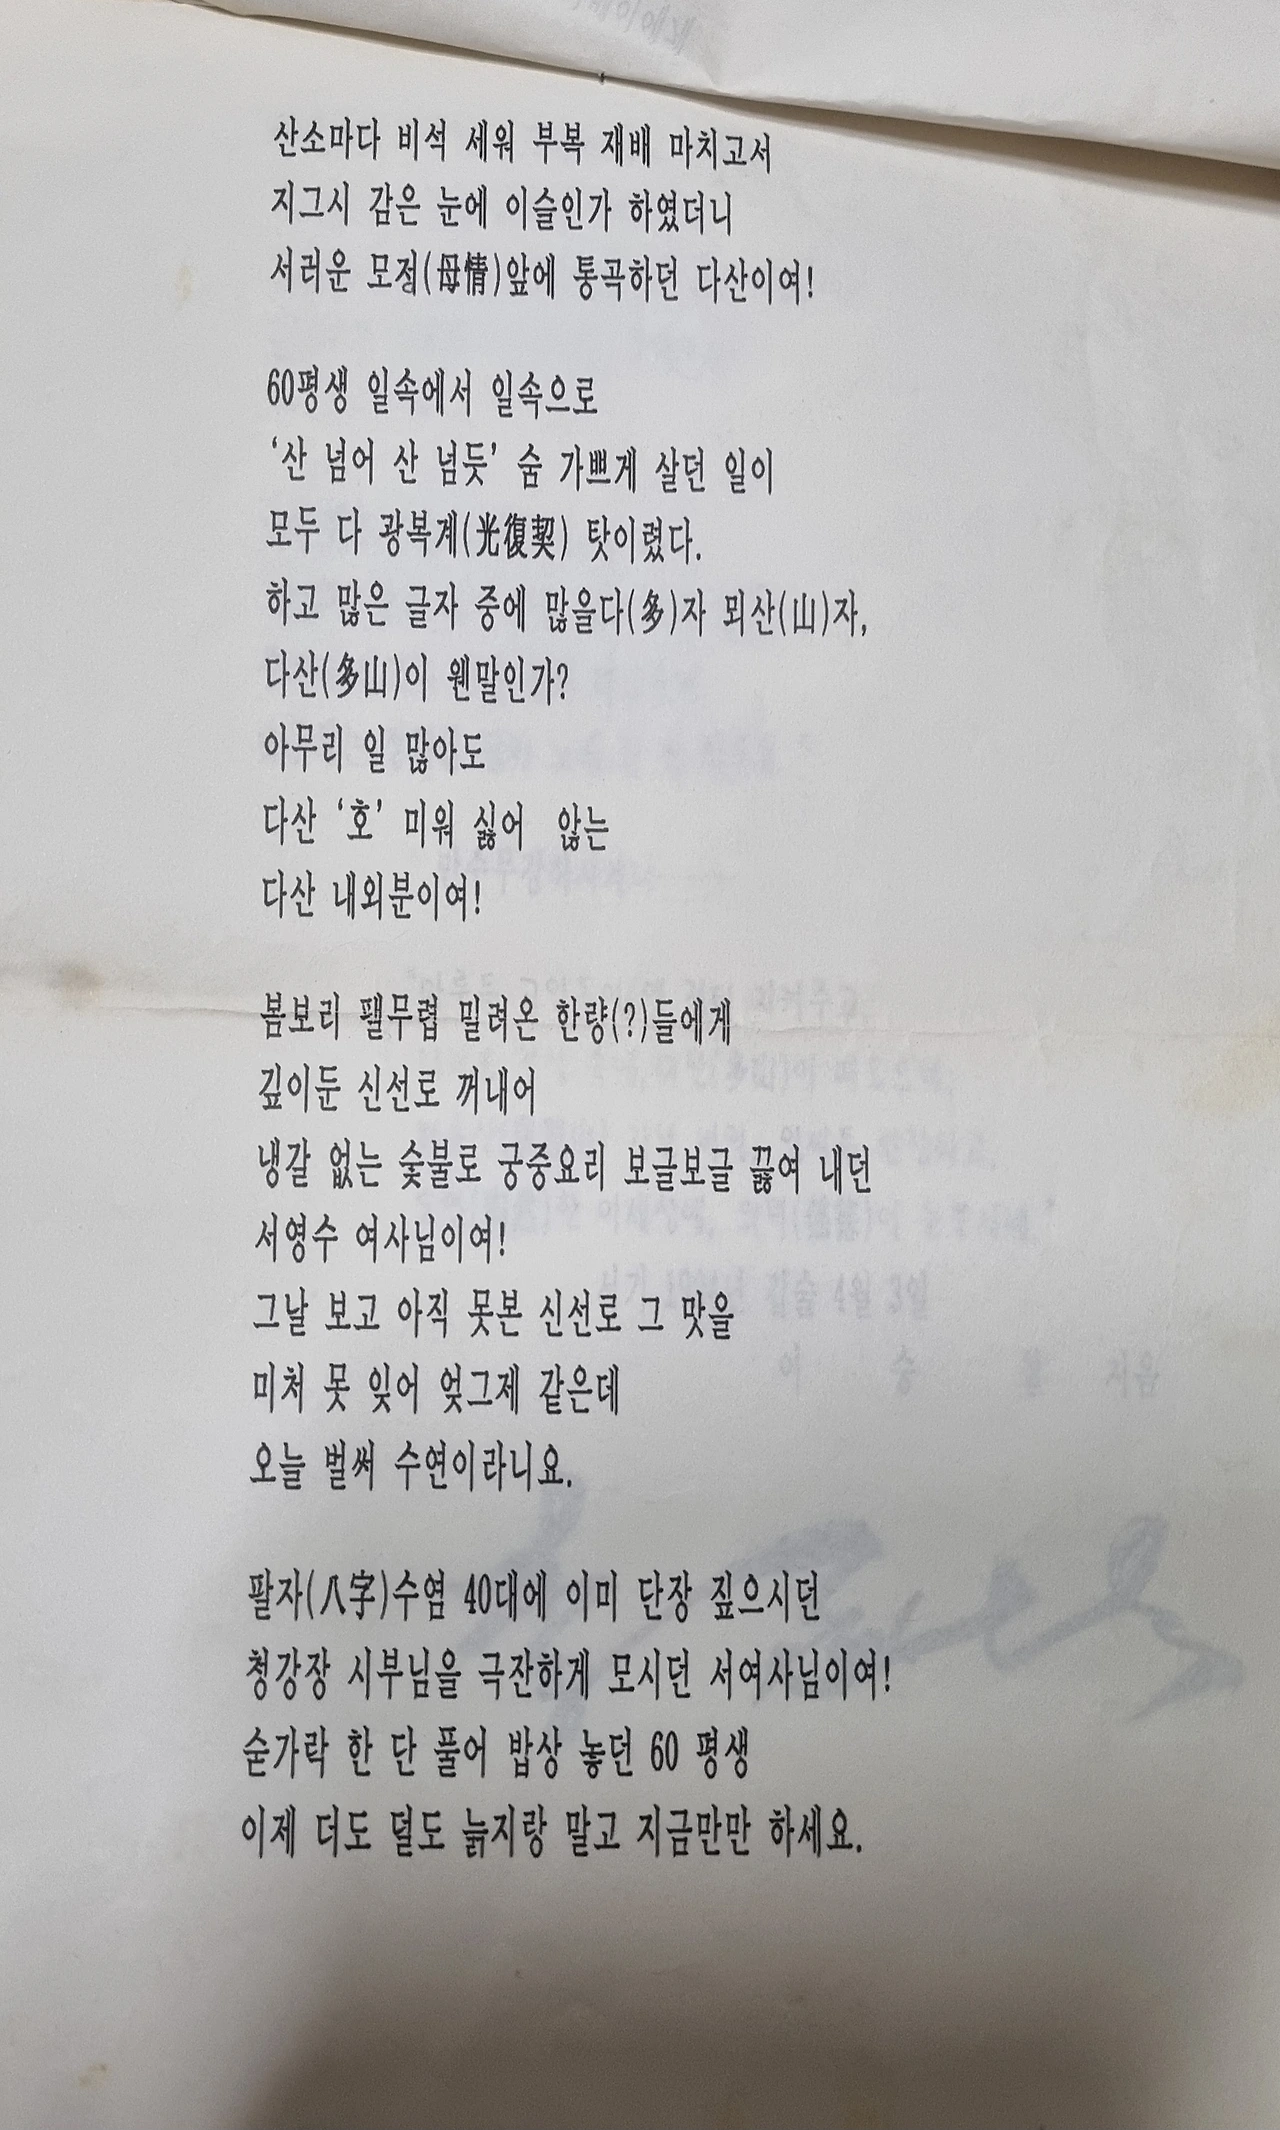 산소마다 비석 세워 부복 재배 마치고서
지그시 감은 눈에 이슬인가 하였더니
서러운 모정(母情)앞에 통곡하던 다산이여!
60평생 일속에서 일속으로
‘산 넘어 산 넘듯’ 숨 가쁘게 살던 일이
모두 다 광복계(光復契) 탓이렸다.
하고 많은 글자 중에 많을다(多)자 뫼산(山)자,
다산(多山)이 웬말인가?
아무리 일 많아도
다산 ‘호’ 미워 싫어 않는
다산 내외분이여!
봄보리 팰무렵 밀려온 한량(?)들에게
깊이둔 신선로 꺼내어
냉갈 없는 숯불로 궁중요리 보글보글 끓여 내던
서영수 여사님이여!
그날 보고 아직 못본 신선로 그 맛을
미처 못 잊어 엊그제 같은데
오늘 벌써 수연이라니요.
팔자(八字)수염 40대에 이미 단장 짚으시던
청강장 시부님을 극잔하게 모시던 서여사님이여!
숟가락 한 단 풀어 밥상 놓던 60 평생
이제 더도 덜도 늙지랑 말고 지금만만 하세요.